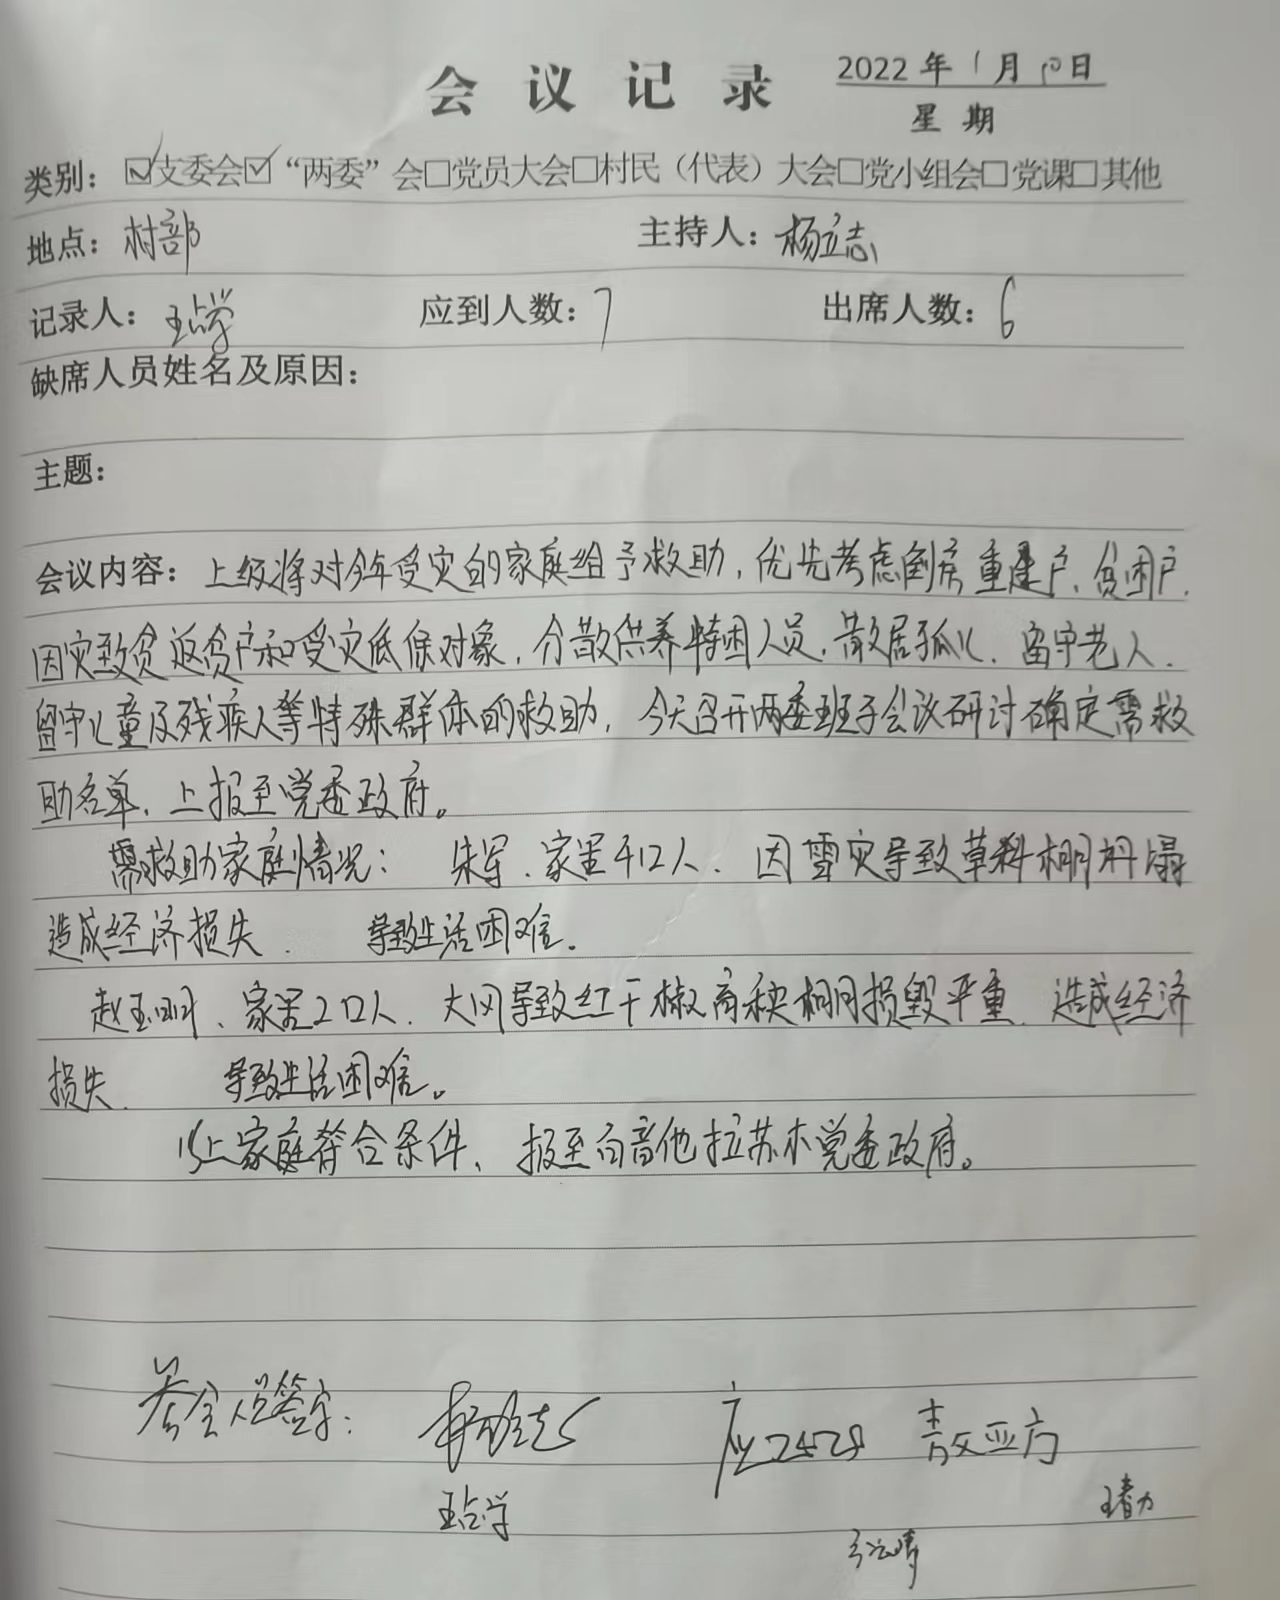 会议记录
2022年1月10日
星期
类别：☑支委会☑“两委”会□党员大会□村民（代表）大会□党小组会□党课□其他
地点：村部 主持人：杨立志
记录人：王占学 应到人数：7 出席人数：6
缺席人员姓名及原因：
主题：
会议内容：上级将对今年受灾的家庭给予救助，优先考虑倒房重建户、贫困户、
因灾致贫返贫户和受灾低保对象，分散供养特困人员，散居孤儿、留守老人、
留守儿童及残疾人等特殊群体的救助，今天召开两委班子会议研讨确定需救
助名单，上报至党委政府。
需救助家庭情况：朱军、家里4口人、因雪灾导致草料棚坍塌
造成经济损失、导致生活困难。
赵玉明、家里2口人、大风导致红干椒育秧棚损毁严重、造成经济
损失、导致生活困难。
以上家庭符合条件、报至白音他拉苏木党委政府。
参会人员签字：杨立志 敖亚方
王占学 王春力